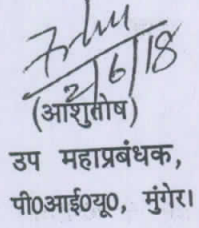 2/6/18
(आशुतोष)
उप महाप्रबंधक,
पी०आई०यू०, मुंगेर।